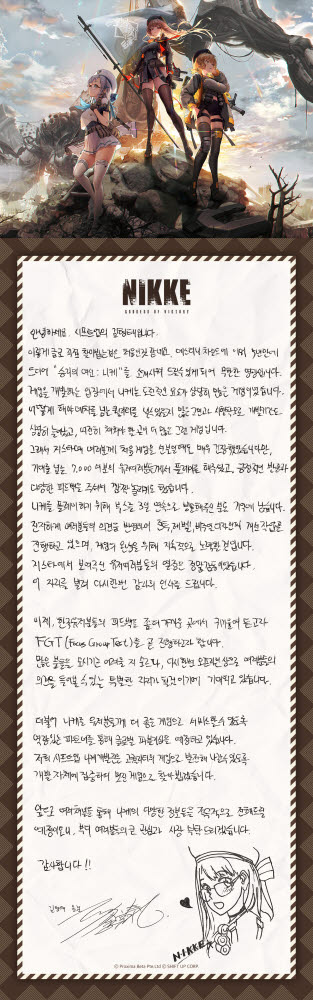 NIKKE
GODDESS OF VICTORY
안녕하세요. 시프트업의 김형태입니다.
이렇게 글로 직접 찾아뵙는것은 처음인것 같네요. 데스티니 차일드에 이어
드디어 "승리의 여신: 니케"를 소개시켜 드릴수 있게 되어 무한한 영광입니다.
게임을 개발하는 입장에서 니케는 도전적인 요소가 상당히 많은 게임이었습니다.
그래서 지스타에서 여러분께 처음 게임을 선보일때도 매우 긴장했었습니다만,
기대를 넘는 7,000 여분의 유저여러분들께서 플레이를 해주셨고, 긍정적인 반응과
다양한 피드백을 주셔서 깜짝 놀라기도 했습니다.
니케를 플레이하기 위해 부스를 3일 연속으로 방문해주신 분도 기억에 남습니다.
진행하고 있으며, 게임의 완성을 위해 지속적으로 노력할 것입니다.
지스타에서 보여주신 유저여러분들의 열정은 정말 감동이었습니다.
이 자리를 빌려 다시한번 감사의 인사를 드립니다.
이제, 한국유저분들의 피드백을 좀더 가까운 곳에서 귀기울여 듣고자
FGT (Focus Group Test)를 곧 진행하고자 합니다.
많은 분들을 모시기는 어려울 지 모르나, 다시한번 오프라인상으로 여러분들의
의견을 들려줄 수 있는 특별한 자리가 될것이기에 기대하고 있습니다.
더불어 니케를 유저분들께 더 좋은 게임으로 서비스할수 있도록
역량있는 파트너를 통해 글로벌 퍼블리싱을 예정하고 있습니다.
저희 시프트업 니케개발진은 고퀄리티의 게임으로 발전해 나갈수있도록
개발 자체에 집중하여 멋진 게임으로 찾아뵙겠습니다.
앞으로 여러채널을 통해 니케의 다양한 정보들을 적극적으로 전해드릴
예정이오니, 부디 여러분들의 큰 관심과 사랑 부탁드리겠습니다.
감사합니다!!
김형태 드림
NIKKE
© Proxima Beta Pte.Ltd © SHIFT UP CORP.